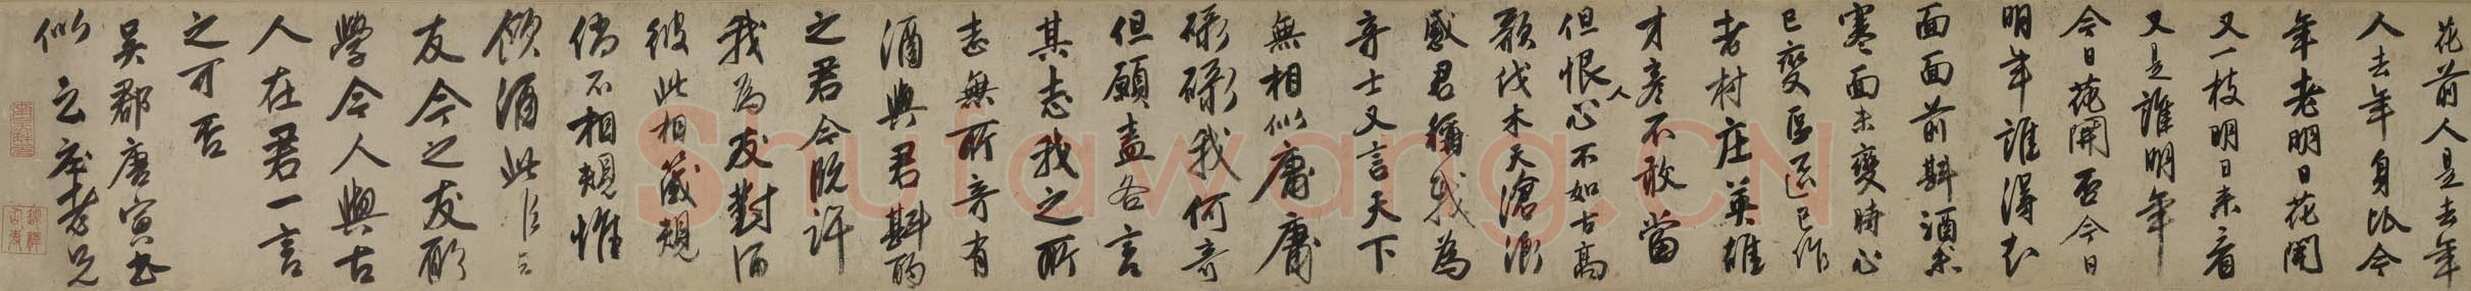 花前人是去年
人去年身比今
年老明日花開
又一枝明日来看
又是誰明年
今日花開否今日
明年誰得知
面面前斟酒未
寒面未變時心
已變區區已作
老村庄英雄
才彥不敢當
但恨人心不如古高
歌伐木天滄浪
感君稱我為
奇士又言天下
無相似庸庸
碌碌我何奇
但願盍各言
其志我之所
志無所奇有
酒與君斟酌
之君今既許
我為友對酒
彼此相箴規
倘不相規惟
飲酒此
友今之友邪
學今人與古
人在君一言
之可否
吳郡唐寅書
似云庄老兄
Shufawang.CN